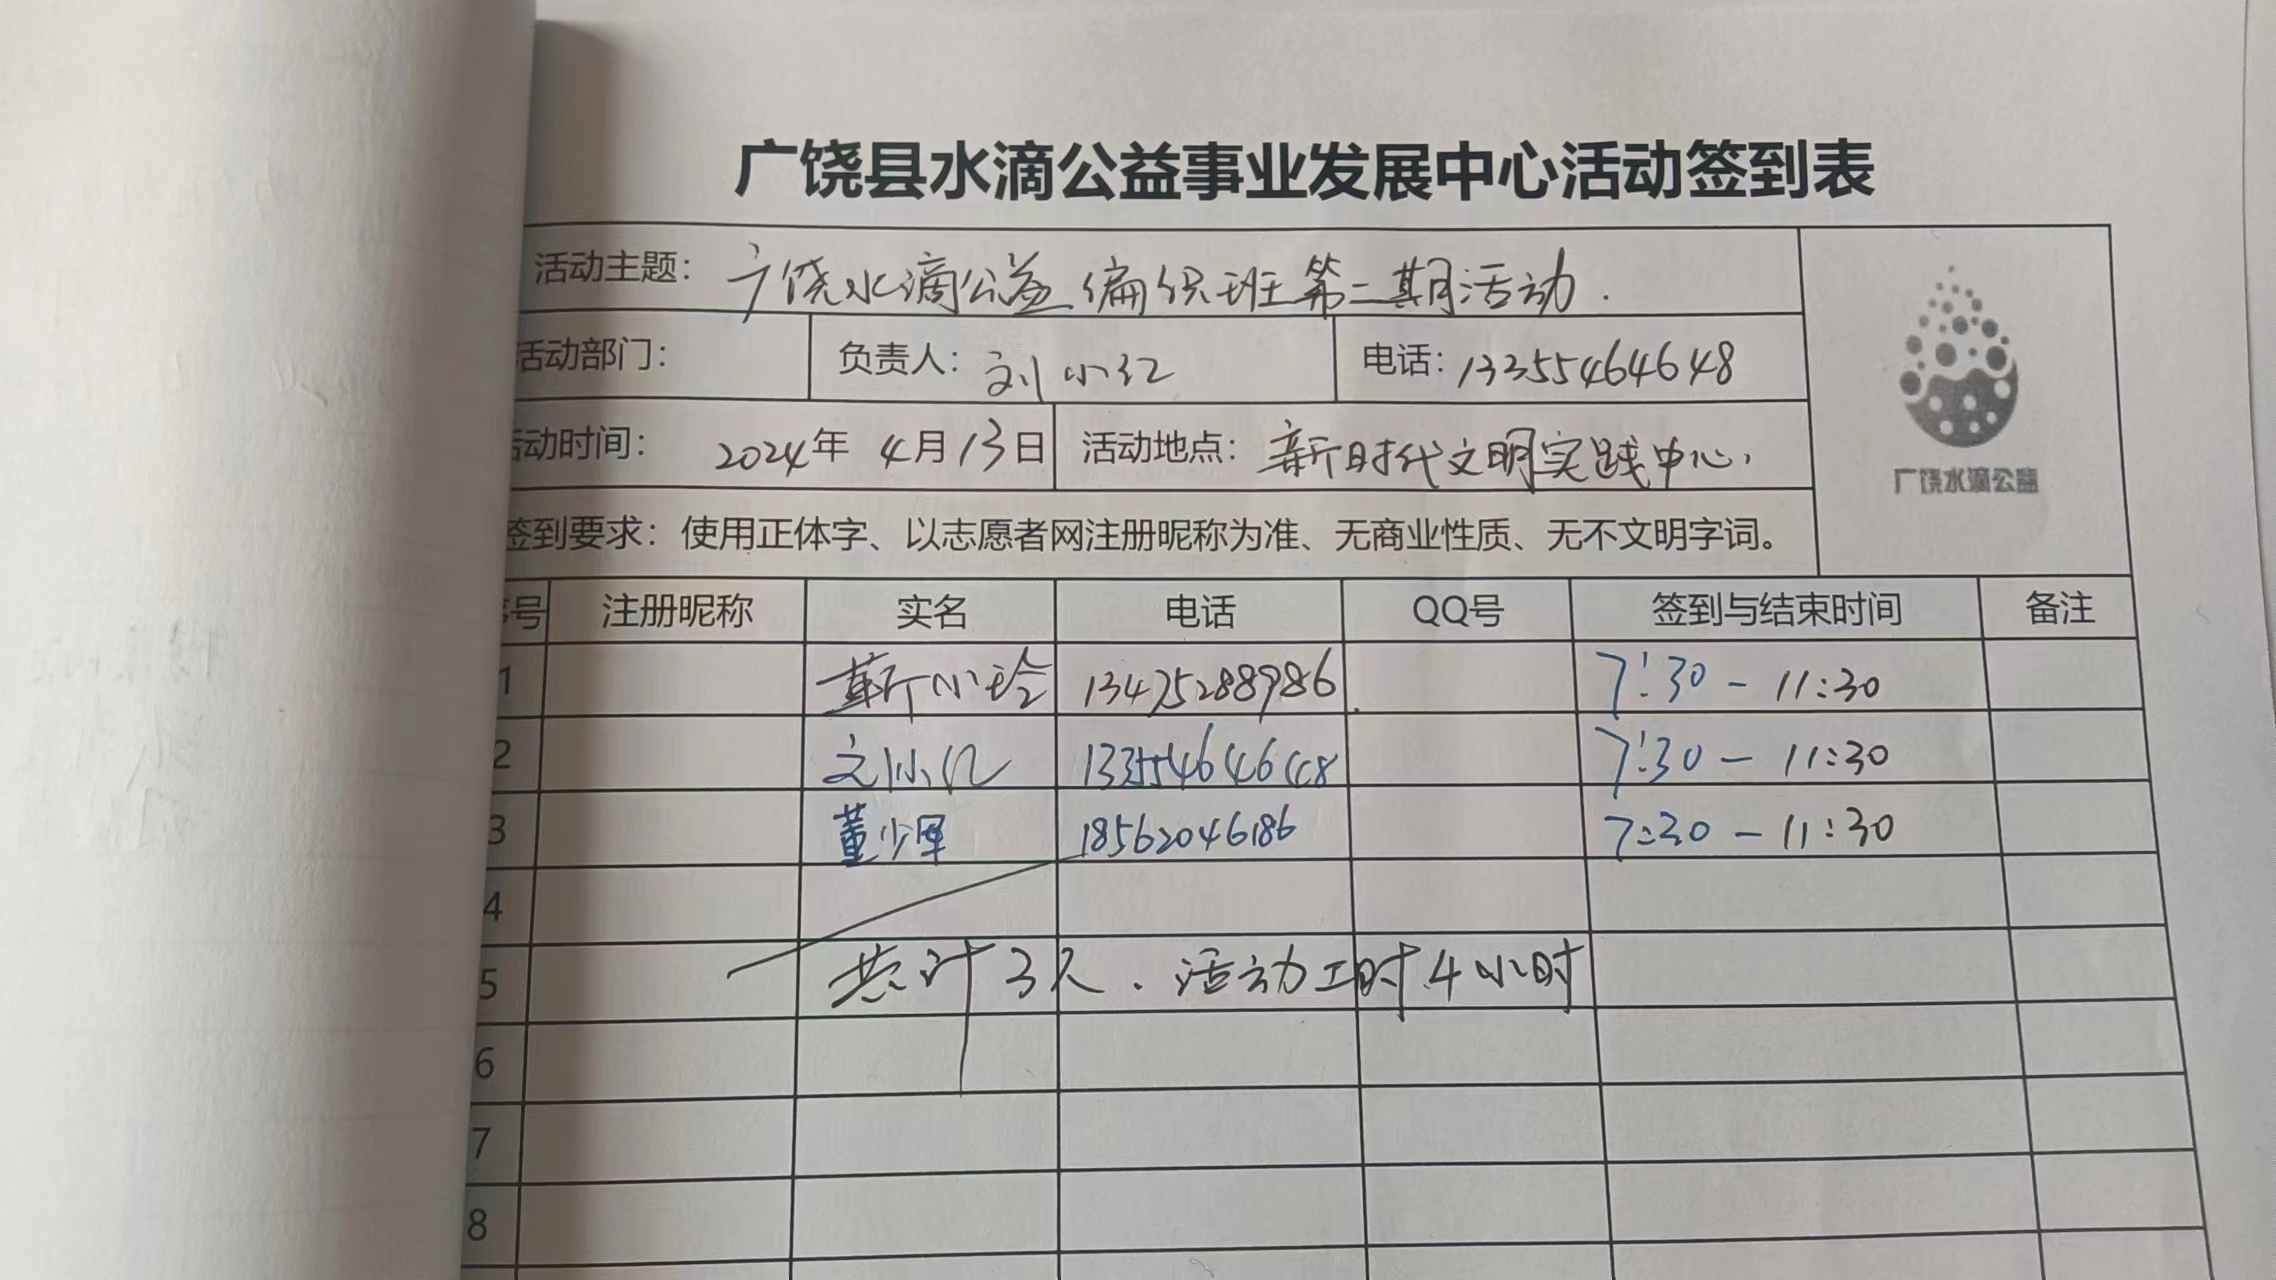 广饶县水滴公益事业发展中心活动签到表
活动主题：广饶水滴公益编织班第二期活动.
广饶水滴公益
活动部门： 负责人：刘小红 电话：13355464648
活动时间： 2024年 4月13日 活动地点：新时代文明实践中心
签到要求：使用正体字、以志愿者网注册昵称为准、无商业性质、无不文明字词。
序号 注册昵称 实名 电话 QQ号 签到与结束时间 备注
1 靳小玲 13475288986 7:30 - 11:30
2 刘小红 13355464648 7:30 - 11:30
3 董少军 18562046186 7:30 - 11:30
4
5 共计3人. 活动工时4小时
6
7
8